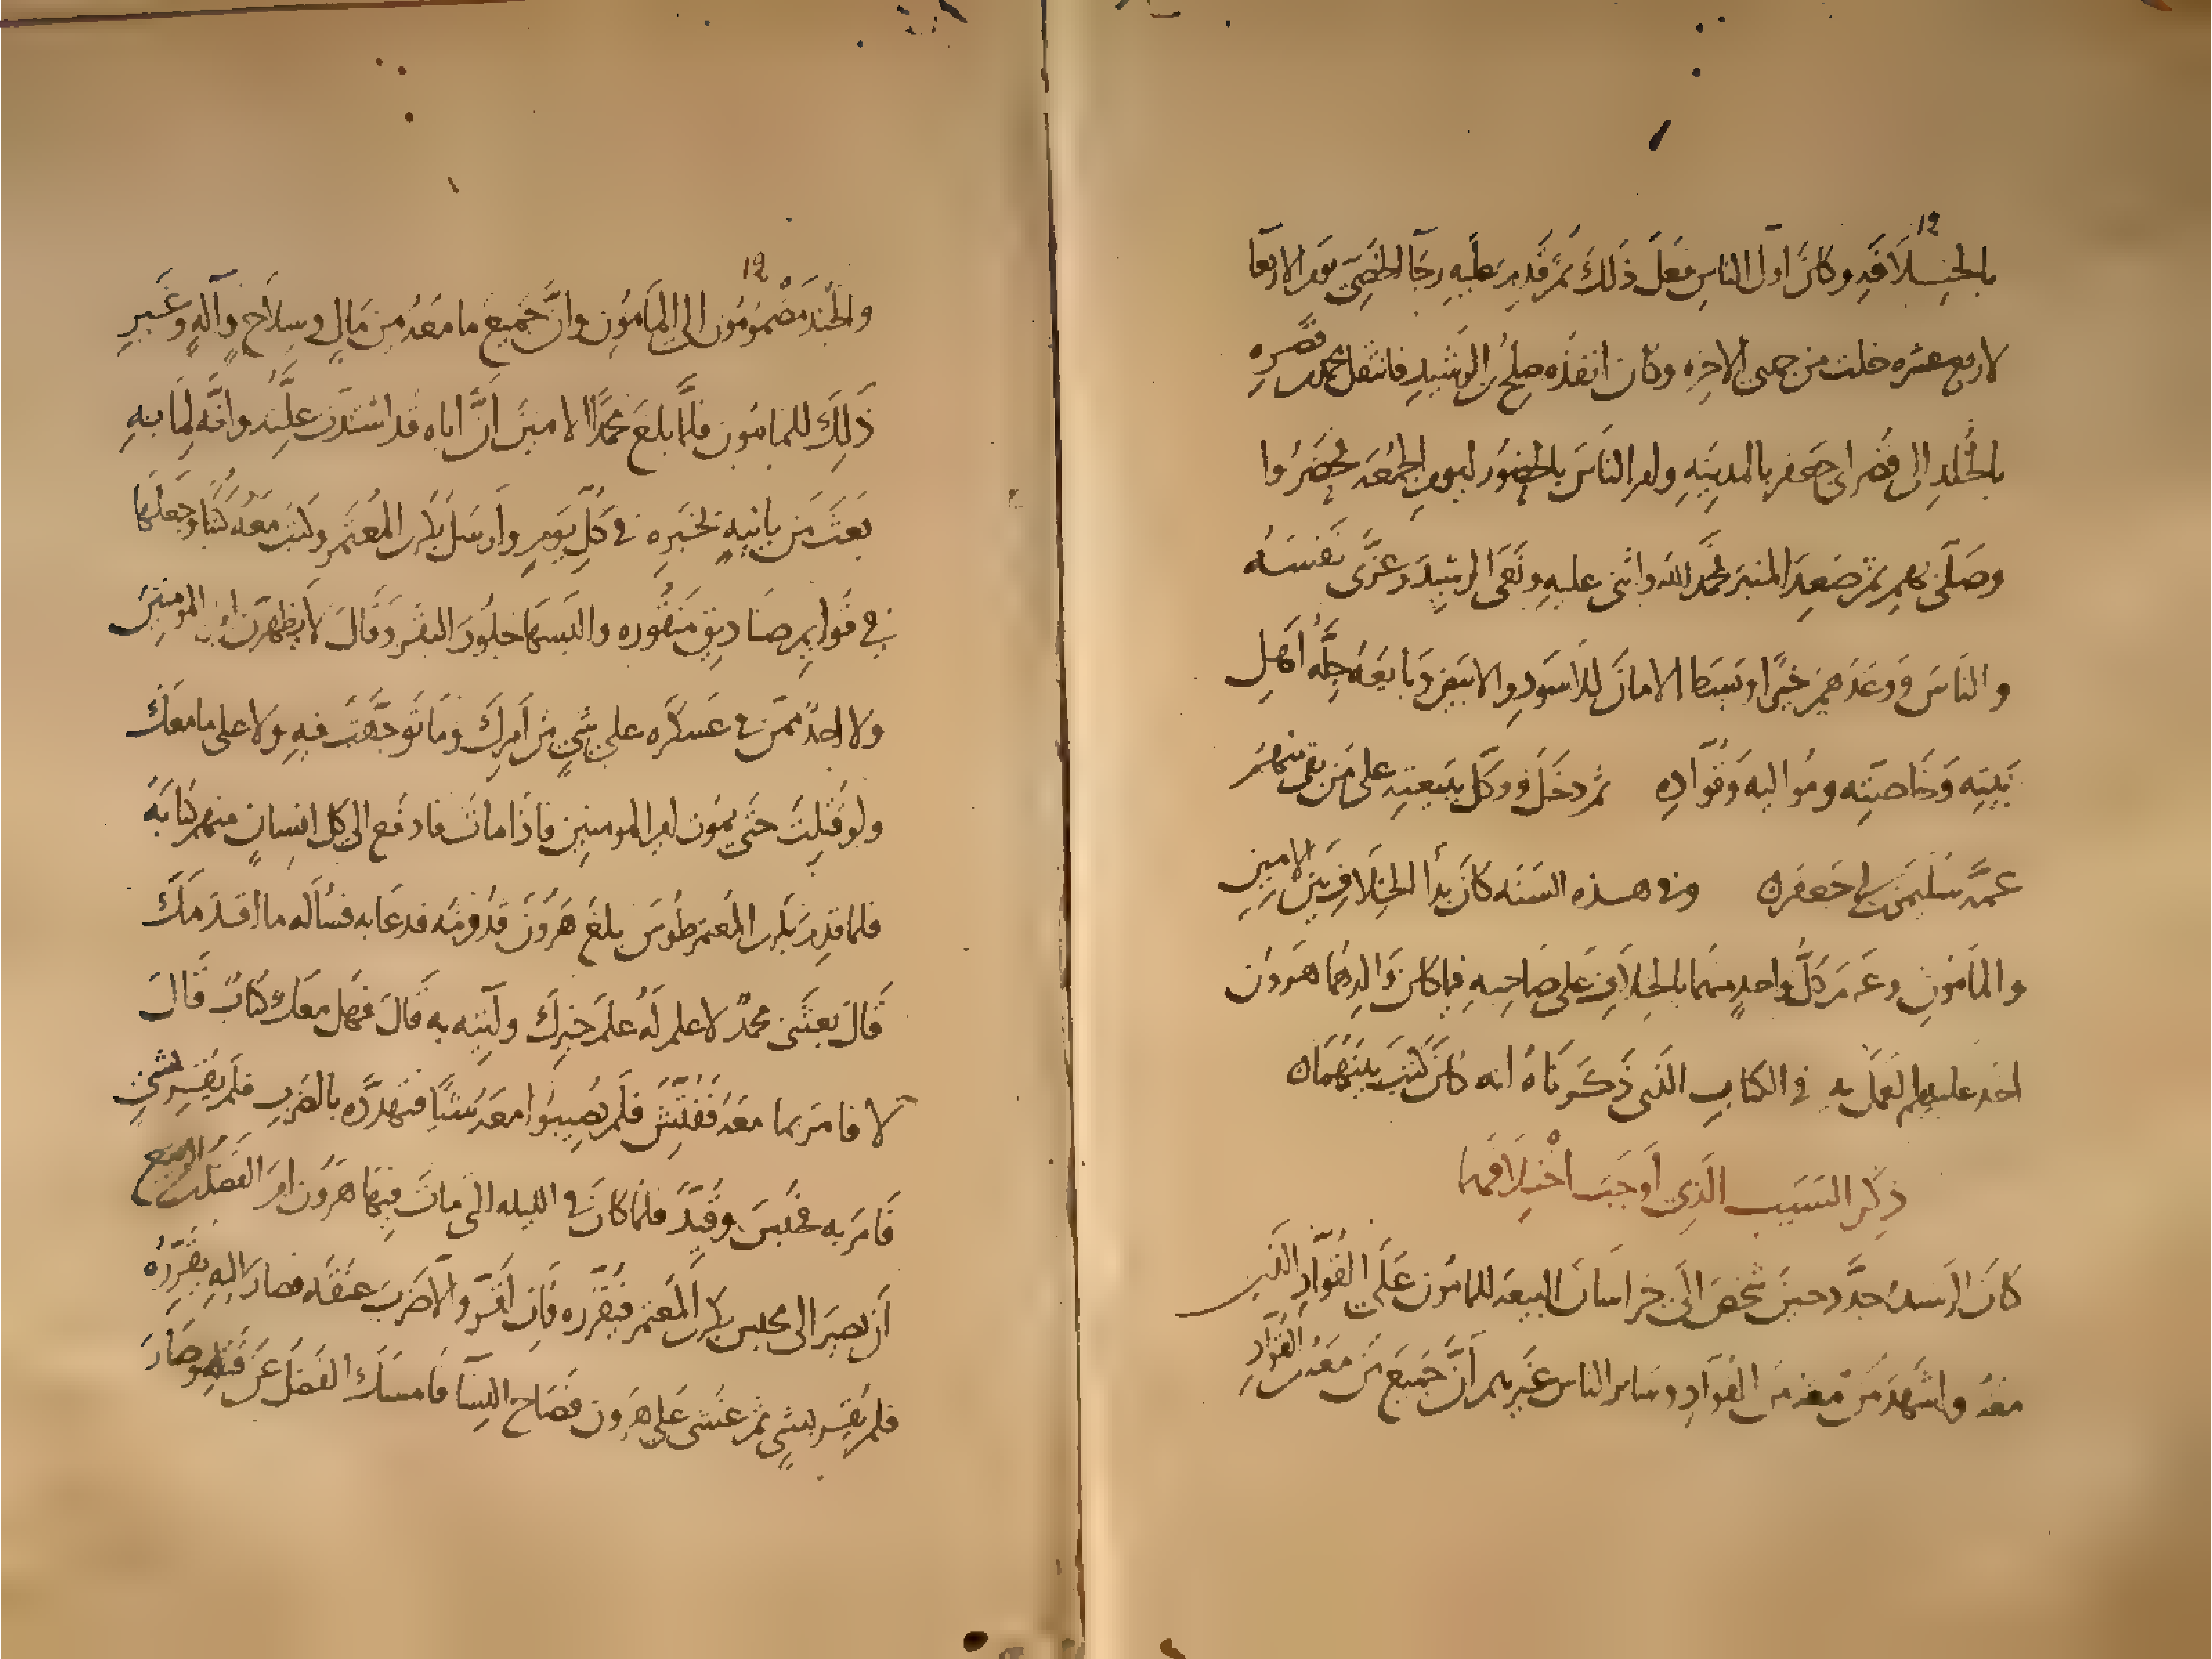 ١٢
بالخلافة وكان اول الناس فعل ذلك ثم قدم عليه رجا الخصى يوم الاربعا
لاربع عشره خلت من جمدى الاخره وكان انفذه صلح بن الرشيد فانتقل محمد من قصره
بالخلد الى قصر ابى جعفر بالمدينه وامر الناس بالحضور ليوم الجمعه فحضروا
وصلى بهم ثم صعد المنبر فحمد الله واثنى عليه ونعى الرشيد وعزى نفسه
والناس ووعدهم خيرا وبسط الامان للاسود والابيض وبايعه جلة اهل
بيته وخاصته ومواليه وقواده ثم دخل ووكل ببيعته على من بقى منهم
عمه سليمن بن ابى جعفر ه وفى هذه السنه كان بدأ الخلاف بين الامين
والمامون وعزم كل واحد منهما بالخلاف على صاحبه فيما كان والدهما هرون
اخذ عليهما العمل به فى الكتاب الذى ذكرناه انه كان كتب بينهما ه
ذكر السبب الذى اوجب اختلافهما
كان الرشيد جدد حين شخص الى خراسان البيعه للمامون على القواد الذين
معه واشهد من معه من القواد وساير الناس غيرهم ان جميع من معه من القواد
١٢
والجند مضمومون الى المامون وان جميع ما معه من مال وسلاح وآلة وغير
ذلك للمامون فلما بلغ محمدا الامين ان اباه قد اشتدت علته وانه لما به
بعث من ياتيه بخبره فى كل يوم وارسل بكر بن المعتمر وكتب معه كتبا وجعلها
فى قوايم صناديق منقوره والبسها جلود البقر وقال لا يظهرن امير المومنين
ولا احد ممن فى عسكره على شى من امرك وما توجهت فيه ولا على ما معك
ولو قتلت حتى يموت امير المومنين فاذا مات فادفع الى كل انسان منهم كتابه
فلما قدم بكر بن المعتمر طوس بلغ هرون قدومه فدعا به فسأله ما اقدمك
قال بعثنى محمد لاعلم له علم خبرك وآتيه به قال فهل معك كتاب قال
لا فامر بما معه ففتش فلم يصيبوا معه شيئا فتهدده بالضرب فلم يقر بشى
فامر به فحبس وقيد فلما كان فى الليله التى مات فيها هرون امر الفضل بن الربيع
ان يصير الى محبس بكر بن المعتمر فيقرره فان اقر والا ضرب عنقه فصار اليه يقرره
فلم يقر بشى ثم غشى على هرون فصاح النسآ فامسك الفضل عن قتله وصار